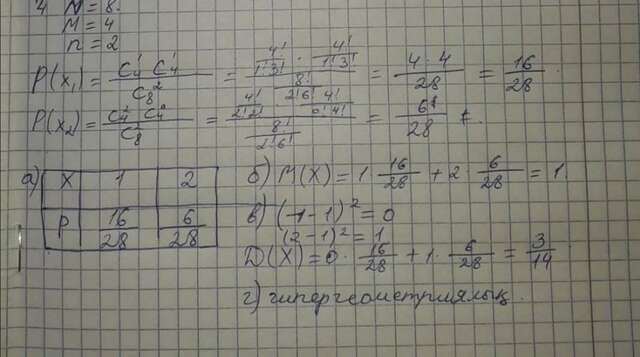 4 N = 8.
M = 4
n = 2
P(x₁) = C₄¹ C₄¹ / C₈² = (4!/1!3! · 4!/1!3!) / (8!/2!6!) = 4·4/28 = 16/28.
P(x₂) = C₄² C₄⁰ / C₈² = (4!/2!2! · 4!/0!4!) / (8!/2!6!) = 6·1/28
а) X 1 2
P 16/28 6/28
б) M(X) = 1·16/28 + 2·6/28 = 1.
в) (1-1)² = 0
(2-1)² = 1
D(X) = 0·16/28 + 1·6/28 = 3/14
г) гипергеометриялық.